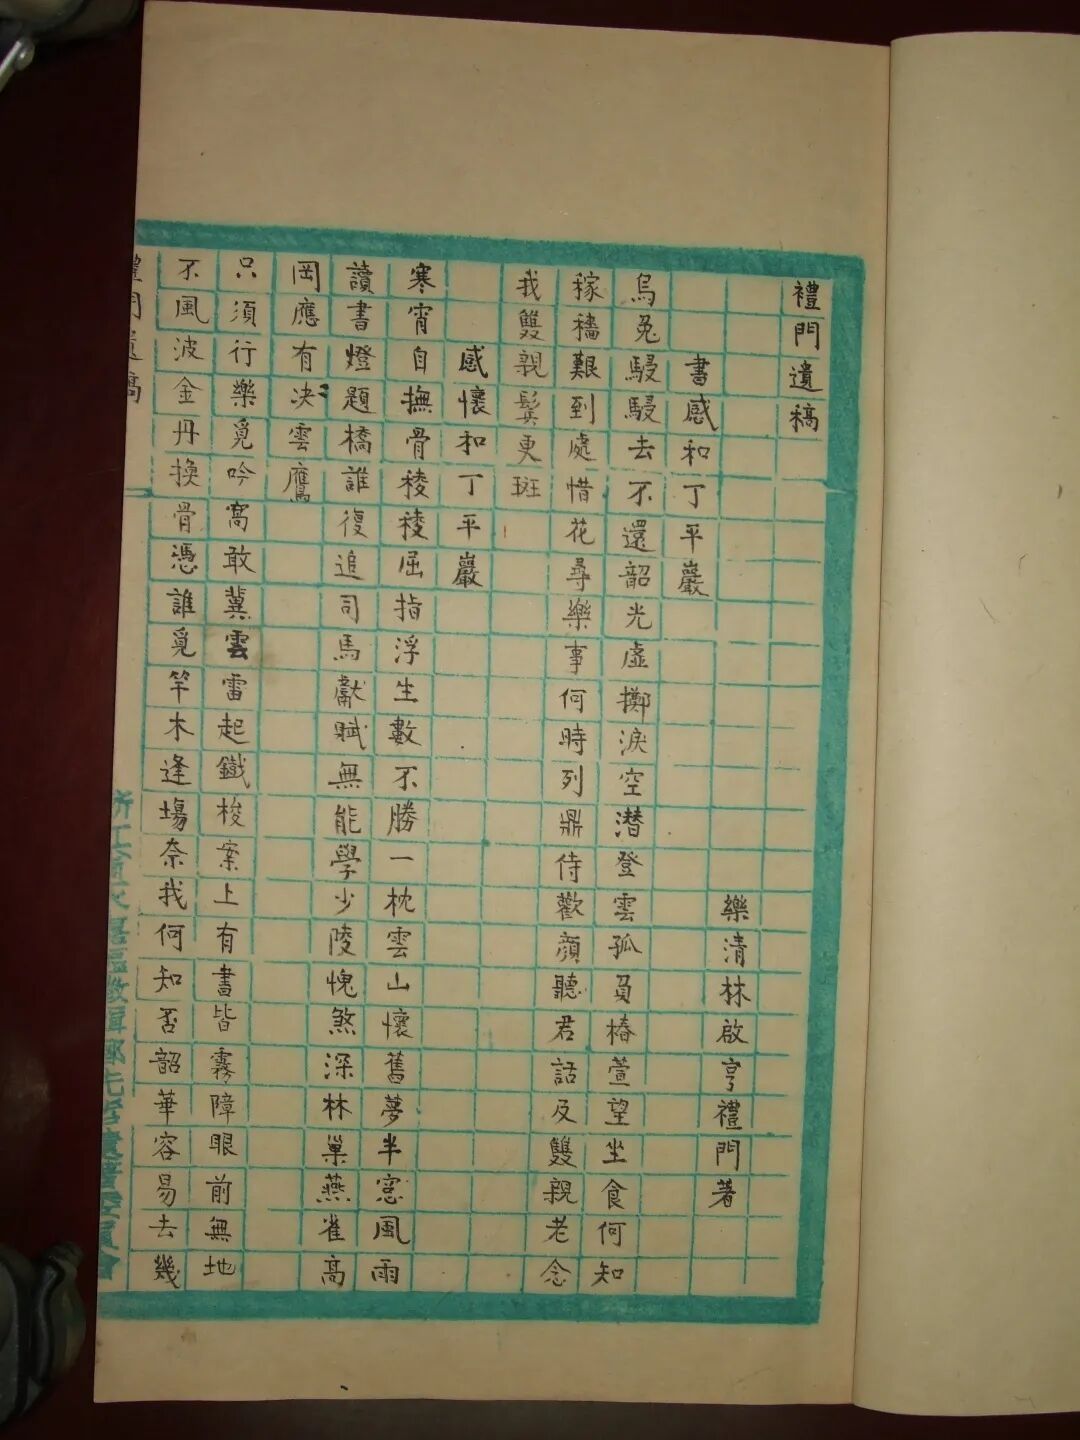 禮門遺稿
樂清林啟亨禮門著
書感和丁平巖
烏兔駸駸去不還韶光虛擲淚空潜登雲孤負椿萱望坐食何知
稼穡艱到處惜花尋樂事何時列鼎侍歡顏聽君話及雙親老念
我雙親鬂更斑
感懷和丁平巖
寒宵自撫骨稜稜屈指浮生數不勝一枕雲山懷舊夢半窓風雨
讀書燈題橋誰復追司馬獻賦無能學少陵愧煞深林巢燕雀高
岡應有決雲鷹
只須行樂覓吟窩敢冀雲雷起鐵梭案上有書皆霧障眼前無地
不風波金丹換骨憑誰覓竿木逢場奈我何知否韶華容易去幾
禮門遺稿
區徵輯鄉先哲遺著委員會